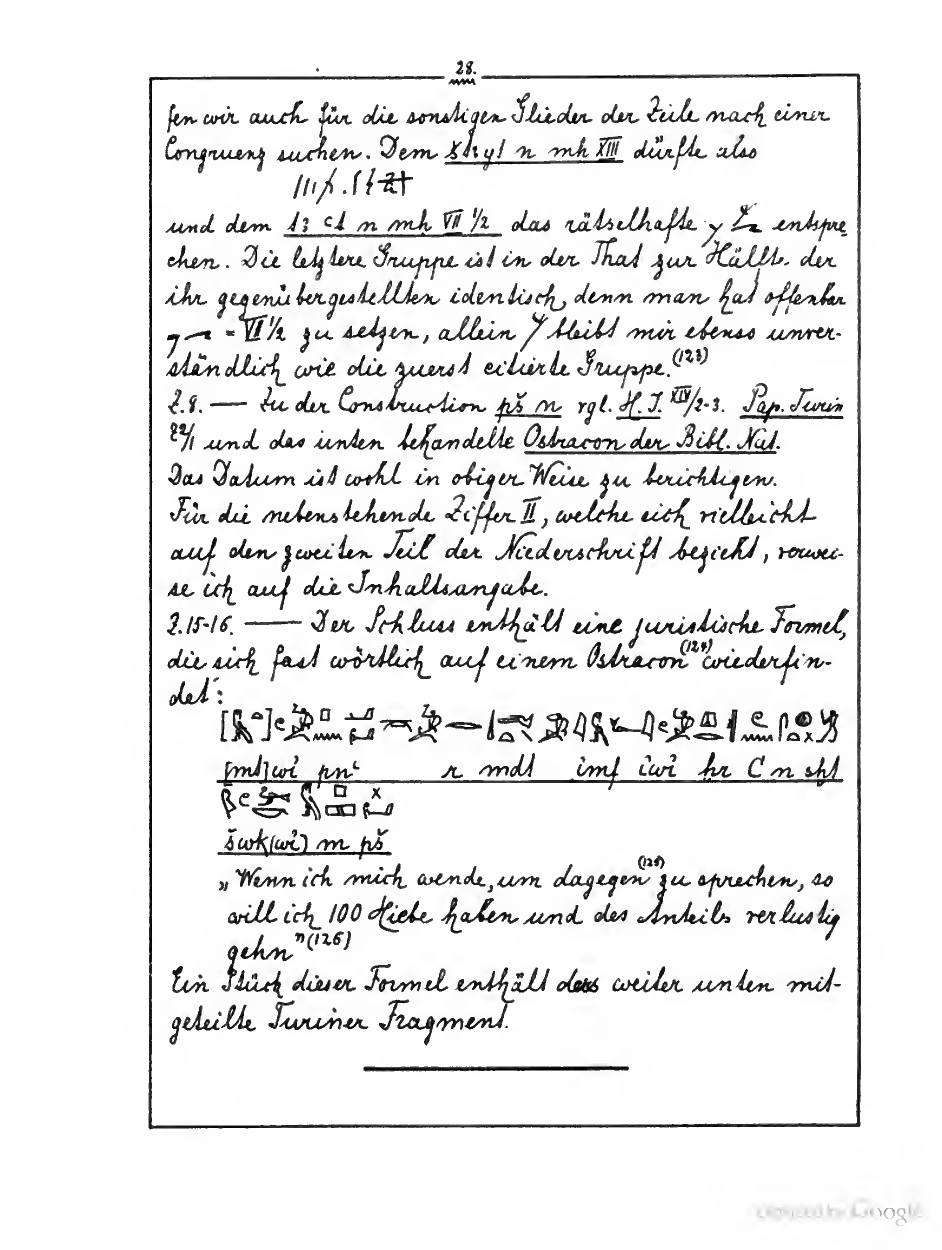 28.
fen wir auch für die sonstigen Glieder der Zeile nach einer
Congruenz suchen. Dem n mh XIII dürfte also
und dem n mh VII 1/2 das rätselhafte entspre
chen. Die letztere Gruppe ist in der That zur Hälfte der
ihr gegenübergestellten identisch, denn man hat offenbar
= VII 1/2 zu setzen, allein bleibt mir ebenso unver-
ständlich wie die zuerst citierte Gruppe.(123)
Z.8. — Zu der Construction pš n vgl. H. T. XIV/2-3. Pap. Turin
22/1 und das unten behandelte Ostracon der Bibl. Nat.
Das Datum ist wohl in obiger Weise zu berichtigen.
Für die nebenstehende Ziffer II, welche sich vielleicht
auf den zweiten Teil der Niederschrift bezieht, verwei-
se ich auf die Inhaltsangabe.
Z.15-16. — Der Schluss enthält eine juristische Formel,
die sich fast wörtlich auf einem Ostracon(124) wiederfin-
det:
[mt]wi pnc r mdt imf iwi hr C n sht
šwk(wi) m pš
„Wenn ich mich wende, um dagegen(125) zu sprechen, so
will ich 100 Hiebe haben und des Anteils verlustig
gehn"(126)
Ein Stück dieser Formel enthält das weiter unten mit-
geteilte Turiner Fragment.
Digitized by Google